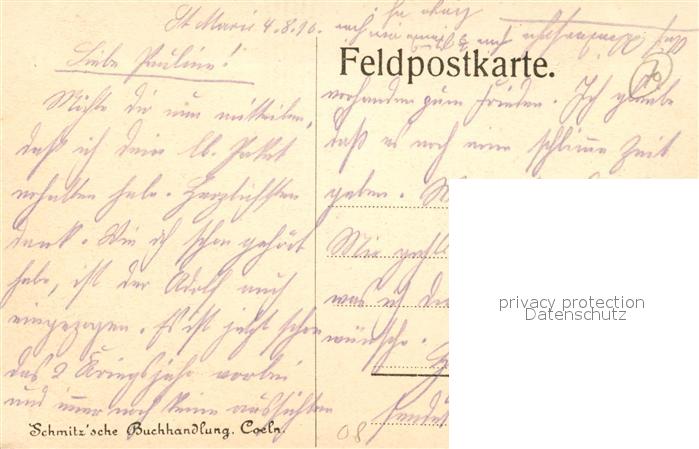 St Marie 4.8.16.
Liebe Pauline!
Möchte dir nun mitteilen,
daß ich dein lb. Paket
erhalten habe. Herzlichsten
dank. Wie ich schon gehört
habe, ist der Adolf auch
eingezogen. Es ist jetzt schon
das 2 Kriegsjahr vorbei
und immer noch keine aussichten
Feldpostkarte.
vorhanden zum Frieden. Ich glaube
daß es noch eine schlimme Zeit
geben.
Mir geht
was ich
wünsche.
sendet
Schmitz'sche Buchhandlung. Coeln.
08
privacy protection
Datenschutz